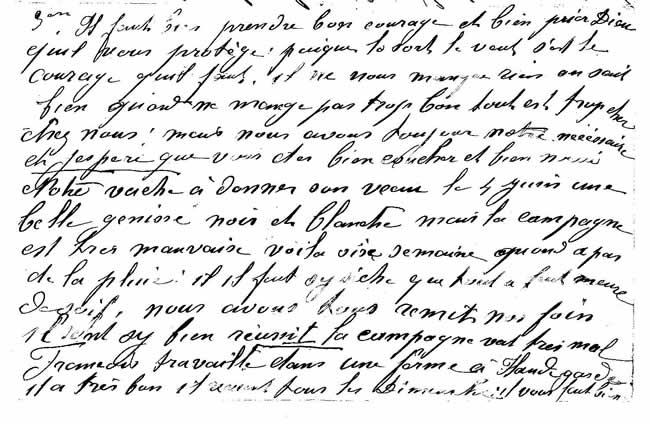 Il faut bien prendre bon courage et bien prier Dieu
quil vous protège puique le sort le veut s'est le
courage qu'il faut. il ne nous manque rien on sait
bien quand ne mange pas trop bon tout est trop cher
chez nous! mais nous avons toujour notre nécéssaire
et j'esperé que vous etes bien coucher et bien nourri
Notre vache à donner son veau le 4 juin une
belle genisse noir et blanche mais la campagne
est tres mauvaise voila sixe semaine quand a pas
de la pluie: il fait sy séche que tout a fait meure
de soif, nous avons tous remit nos foin
il sont sy bien réussit la campagne vat tres mal
Francois travaille dans une ferme à
il a très bon il revient tous les Dimanche: il vous fait bien